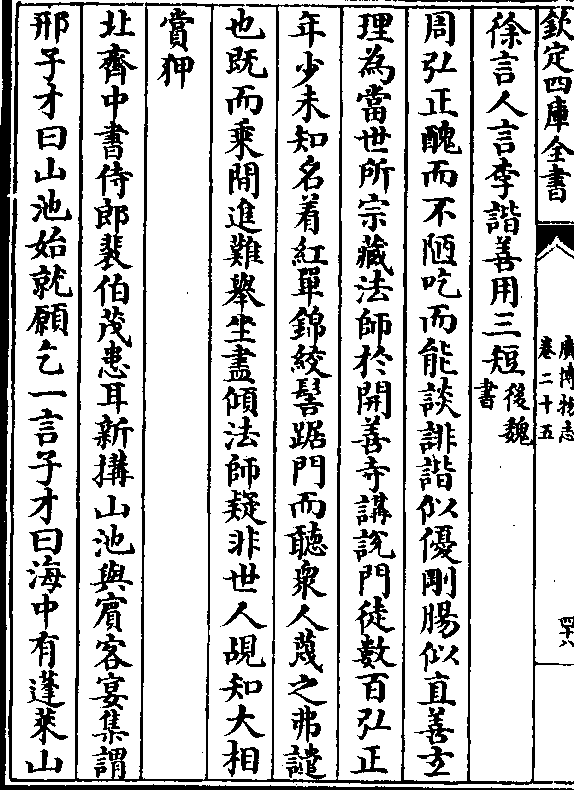 欽定四庫全書
廣博物志
卷二十五
四十六
徐言人言李諧善用三短後魏
書
周弘正醜而不陋吃而能談誹諧似優剛腸似直善玄
理為當世所宗藏法師於開善寺講説門徒數百弘正
年少未知名着紅單錦絞髻踞門而聽衆人蔑之弗譴
也既而乘間進難舉坐盡傾法師疑非世人覘知大相
賞狎
北齊中書侍郎裴伯茂患耳新搆山池與賓客宴集謂
邢子才曰山池始就願乞一言子才曰海中有蓬萊山